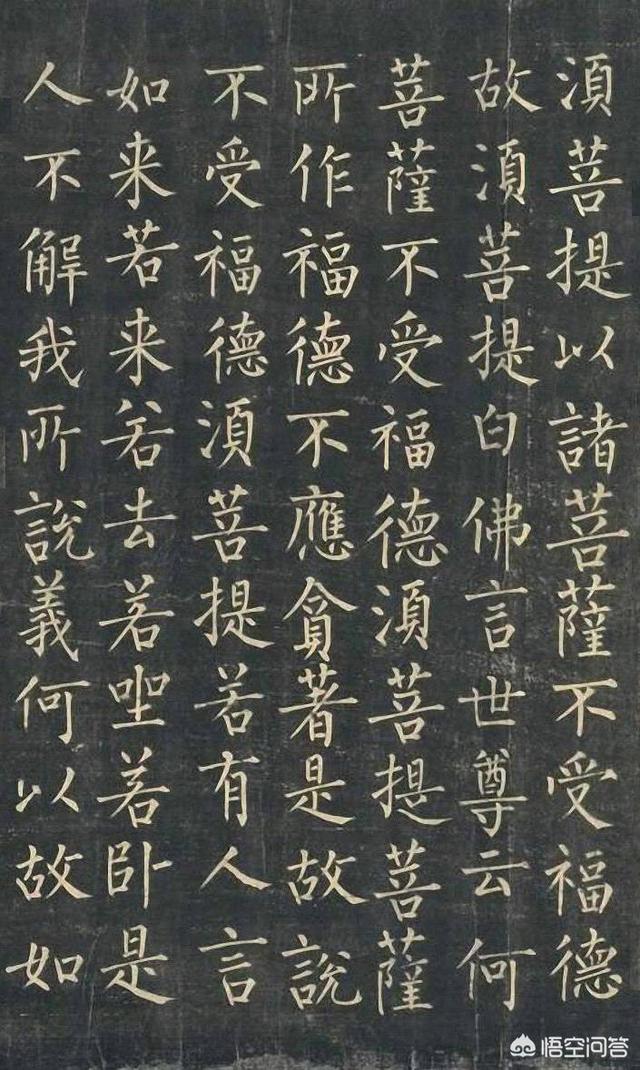 湏菩提以諸菩薩不受福德
故湏菩提白佛言世尊云何
菩薩不受福德湏菩提菩薩
所作福德不應貪著是故説
不受福德湏菩提若有人言
如来若来若去若坐若卧是
人不解我所説義何以故如
悟空问答